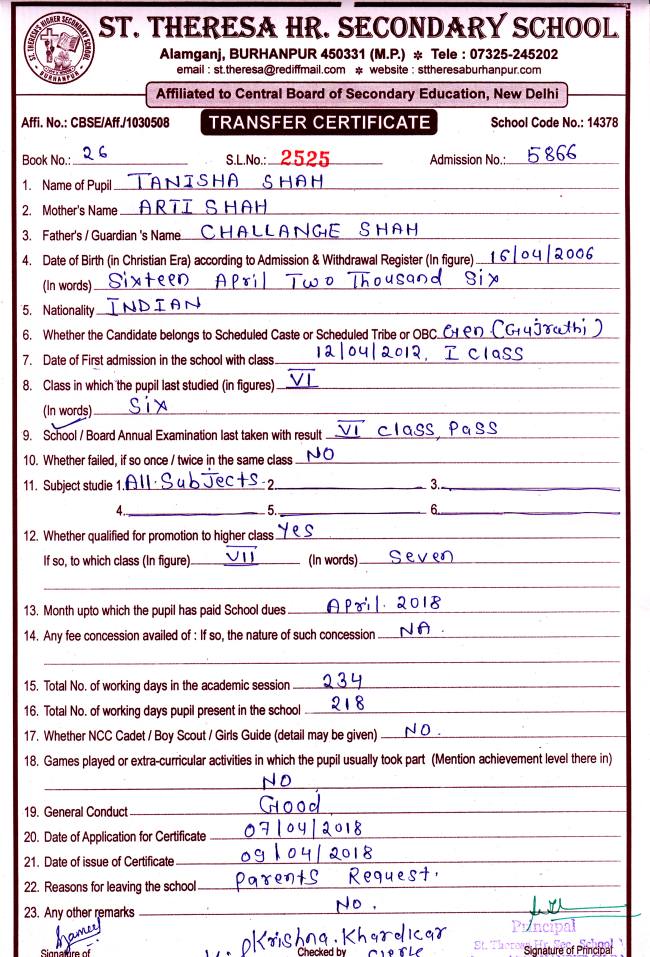 ST. THERESA HR. SECONDARY SCHOOL
Alamganj, BURHANPUR 450331 (M.P.) ✻ Tele : 07325-245202
email : st.theresa@rediffmail.com ✻ website : sttheresaburhanpur.com
Affiliated to Central Board of Secondary Education, New Delhi
Affi. No.: CBSE/Aff./1030508 TRANSFER CERTIFICATE School Code No.: 14378
Book No.: 26 S.L.No.: 2525 Admission No.: 5866
1. Name of Pupil TANISHA SHAH
2. Mother's Name ARTI SHAH
3. Father's / Guardian 's Name CHALLANGE SHAH
4. Date of Birth (in Christian Era) according to Admission & Withdrawal Register (In figure) 16/04/2006
(In words) Sixteen April Two Thousand Six
5. Nationality INDIAN
6. Whether the Candidate belongs to Scheduled Caste or Scheduled Tribe or OBC Gen (Gujrathi)
7. Date of First admission in the school with class 12/04/2012, I class
8. Class in which the pupil last studied (in figures) VI
(In words) Six
9. School / Board Annual Examination last taken with result VI class, Pass
10. Whether failed, if so once / twice in the same class NO
11. Subject studie 1. All Subjects 2. 3.
4. 5. 6.
12. Whether qualified for promotion to higher class Yes
If so, to which class (In figure) VII (In words) Seven
13. Month upto which the pupil has paid School dues April. 2018
14. Any fee concession availed of : If so, the nature of such concession NA.
15. Total No. of working days in the academic session 234
16. Total No. of working days pupil present in the school 218
17. Whether NCC Cadet / Boy Scout / Girls Guide (detail may be given) NO.
18. Games played or extra-curricular activities in which the pupil usually took part (Mention achievement level there in)
NO
19. General Conduct Good
20. Date of Application for Certificate 07/04/2018
21. Date of issue of Certificate 09/04/2018
22. Reasons for leaving the school Parents Request.
23. Any other remarks No.
Principal
Krishna. Khardikar
St. Theresa Hr. Sec. School
Signature of Checked by Signature of Principal